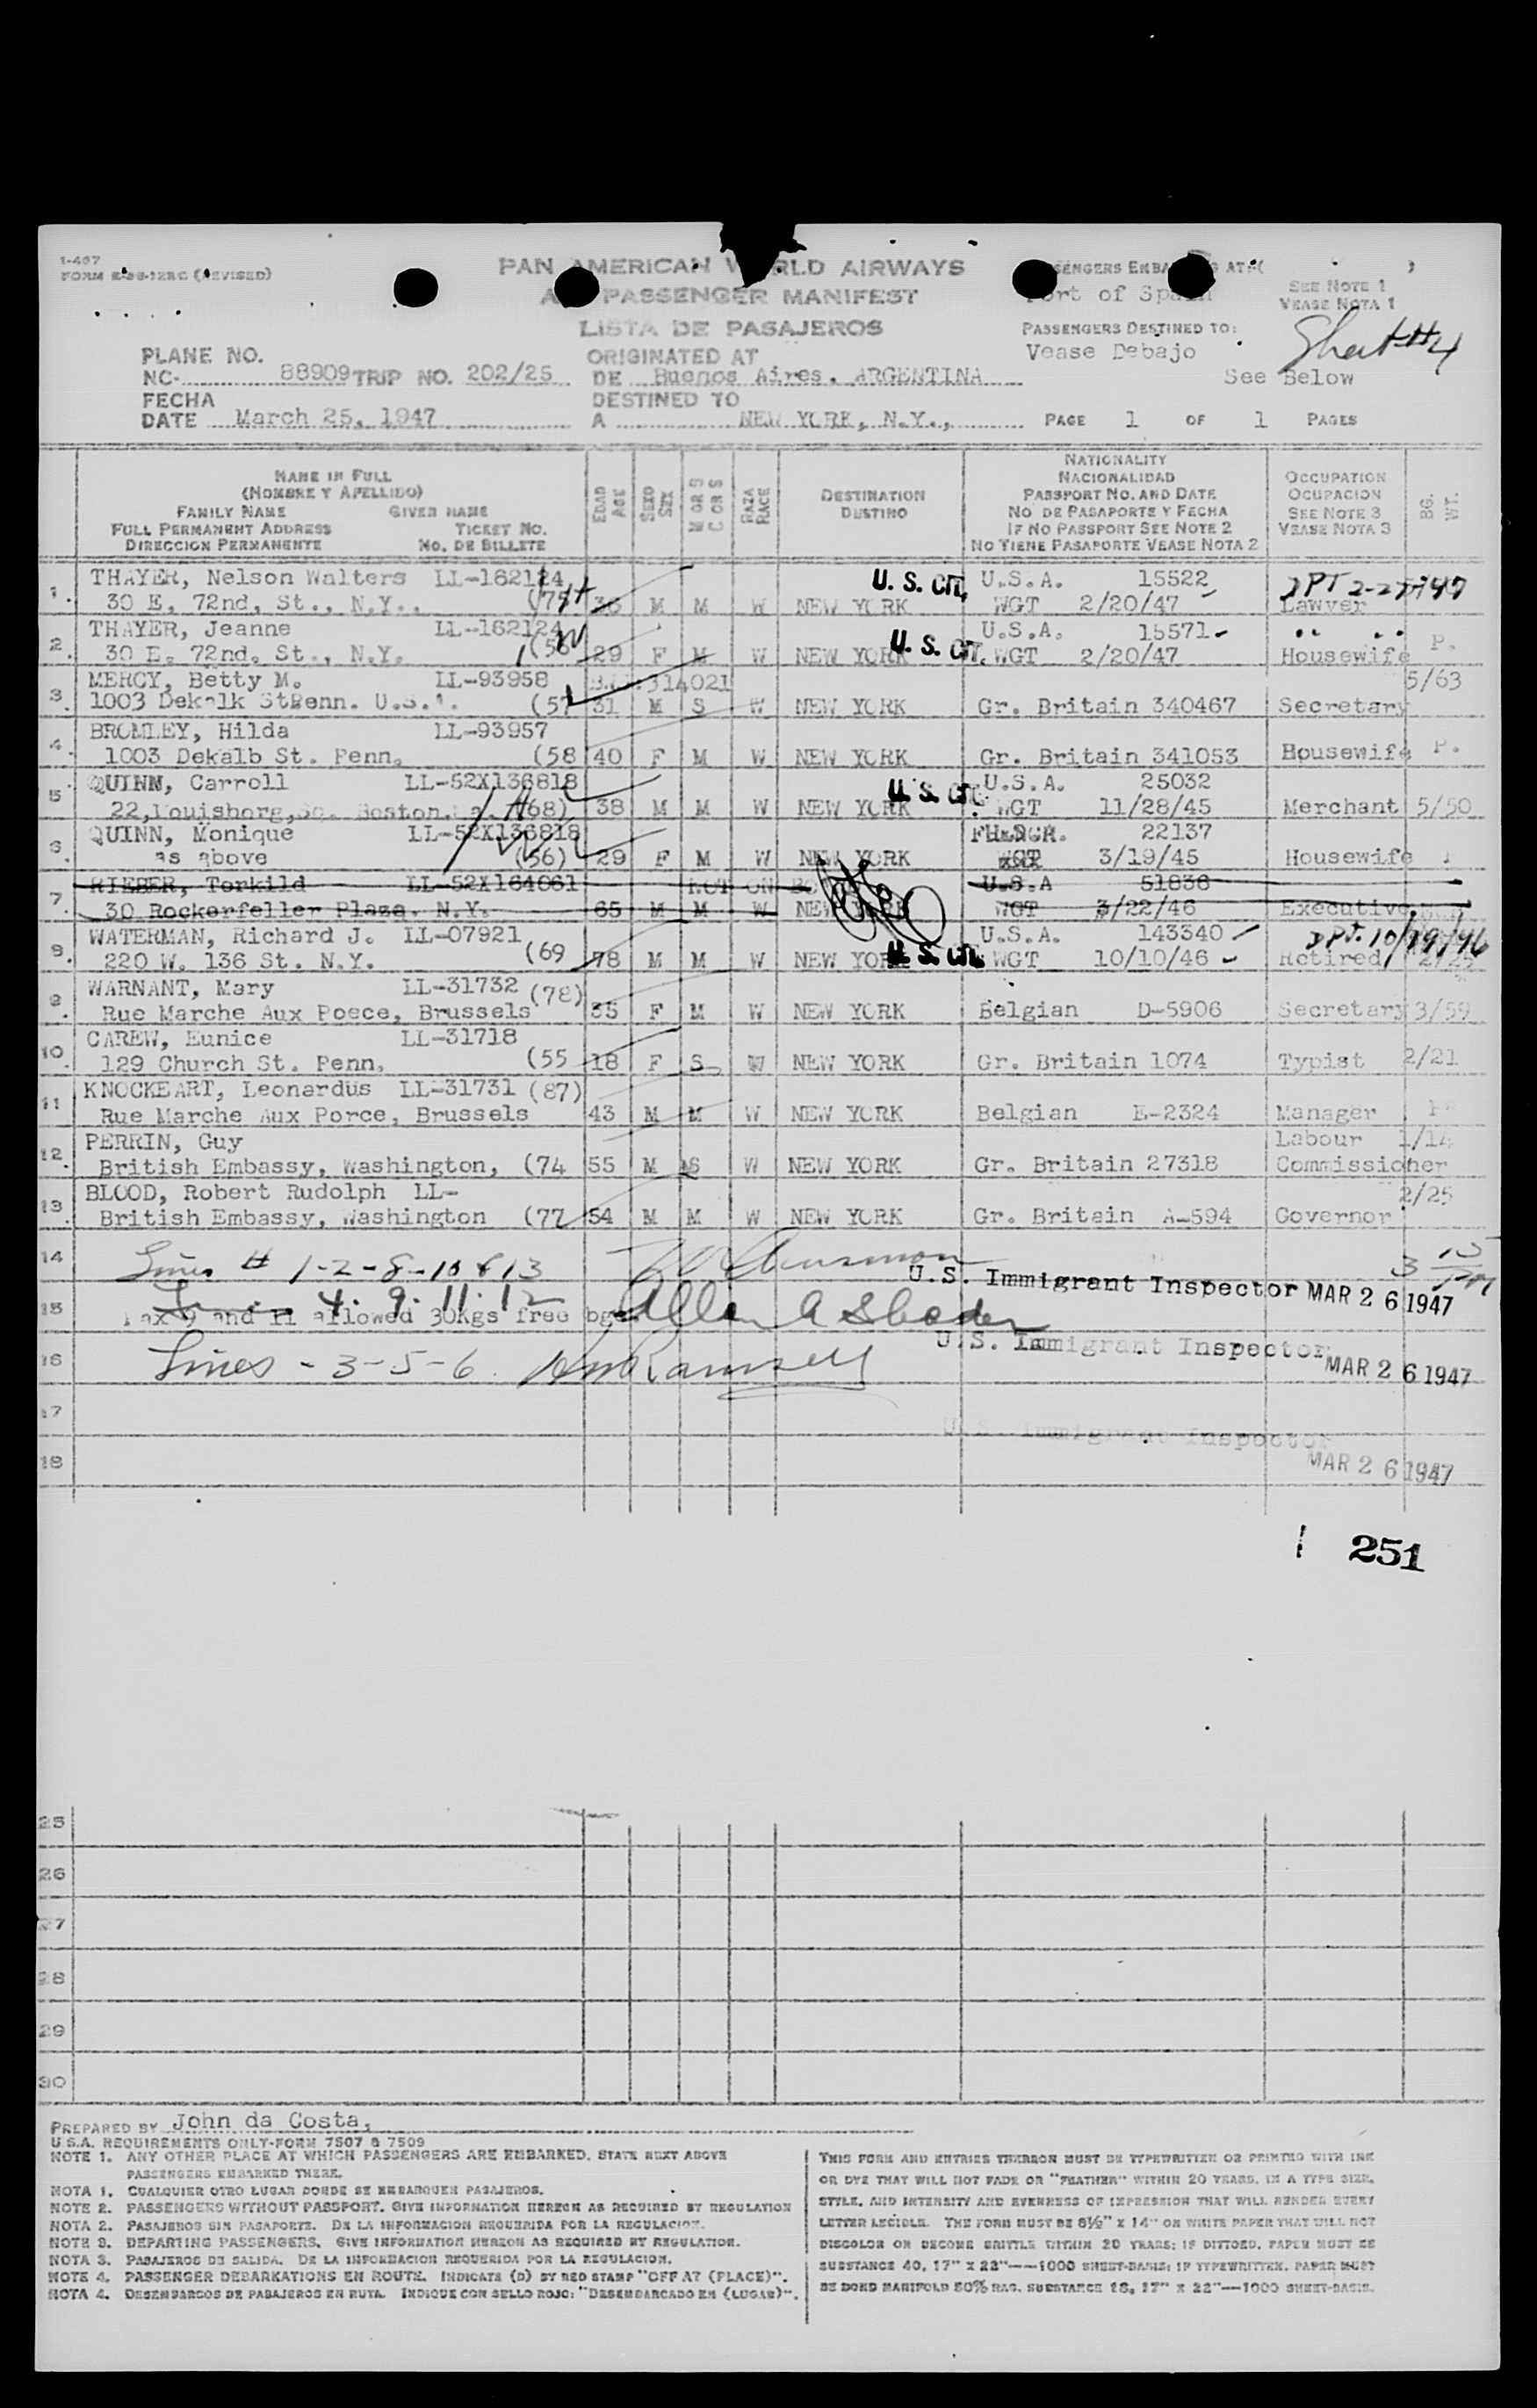 1-467
FORM (REVISED)
PAN AMERICAN WORLD AIRWAYS
PASSENGER MANIFEST
LISTA DE PASAJEROS
PASSENGERS EMBARKING AT:(          )
Port of Spain
SEE NOTE 1
VEASE NOTA 1
PASSENGERS DESTINED TO:
Vease Debajo
See Below
Sheet #4
PLANE NO.
NC- 88909 TRIP NO. 202/25
ORIGINATED AT
DE Buenos Aires, ARGENTINA
FECHA
DATE March 25, 1947
DESTINED TO
A NEW YORK, N.Y.,
PAGE 1 OF 1 PAGES
NAME IN FULL
(NOMBRE Y APELLIDO)
FAMILY NAME GIVEN NAME
FULL PERMANENT ADDRESS TICKET NO.
DIRECCION PERMANENTE NO. DE BILLETE
EDAD AGE
SEXO SEX
M OR S C OR S
RAZA RACE
DESTINATION
DESTINO
NATIONALITY
NACIONALIDAD
PASSPORT NO. AND DATE
NO DE PASAPORTE Y FECHA
IF NO PASSPORT SEE NOTE 2
NO TIENE PASAPORTE VEASE NOTA 2
OCCUPATION
OCUPACION
SEE NOTE 3
VEASE NOTA 3
BG. WT.
1. THAYER, Nelson Walters LL-162124 U. S. CIT. U.S.A. 15522 DPT 2-27-947
30 E. 72nd. St., N.Y., (75 36 M M W NEW YORK WGT 2/20/47 Lawyer
2. THAYER, Jeanne LL-162124 U.S.A. 15571
30 E. 72nd. St., N.Y. (56 29 F M W NEW YORK U. S. CIT. WGT 2/20/47 Housewife P.
3. MERCY, Betty M. LL-93958 314021 5/63
1003 Dekalk StPenn. U.S.A. (57 31 M S W NEW YORK Gr. Britain 340467 Secretary
4. BROMLEY, Hilda LL-93957
1003 Dekalb St. Penn. (58 40 F M W NEW YORK Gr. Britain 341053 Housewife P.
5 QUINN, Carroll LL-52X136818 U. S. CIT. U.S.A. 25032
22,Louisborg,Sq. Boston. (68) 38 M M W NEW YORK WGT 11/28/45 Merchant 5/50
6 QUINN, Monique LL-52X136818 22137
as above (56) 29 F M W NEW YORK WGT 3/19/45 Housewife
7. RIEBER, Torkild LL-52X164061 NOT ON BOARD U.S.A 51836
30 Rockerfeller Plaza. N.Y. 65 M M W NEW YORK WGT 3/22/46 Executive
WATERMAN, Richard J. LL-07921 U.S.A. 143340 DPT. 10/19/46
220 W. 136 St. N.Y. (69 78 M M W NEW YORK U. S. CIT. WGT 10/10/46 Retired
WARNANT, Mary LL-31732 (78)
Rue Marche Aux Poece, Brussels 35 F M W NEW YORK Belgian D-5906 Secretary 3/59
10. CAREW, Eunice LL-31718
129 Church St. Penn. (55 18 F S W NEW YORK Gr. Britain 1074 Typist 2/21
11 KNOCKEART, Leonardus LL-31731 (87)
Rue Marche Aux Porce, Brussels 43 M M W NEW YORK Belgian E-2324 Manager
12. PERRIN, Guy Labour 1/14
British Embassy, Washington, (74 55 M S W NEW YORK Gr. Britain 27318 Commissioner
13. BLOOD, Robert Rudolph LL- 2/25
British Embassy, Washington (77 54 M M W NEW YORK Gr. Britain A-594 Governor
14 Lines # 1-2-8-10 & 13
U.S. Immigrant Inspector MAR 26 1947 3 15 PM
15 Lines 4. 9. 11. 12
Pax 9 and 11 allowed 30kgs free bg
Allen A Shader
U.S. Immigrant Inspector MAR 26 1947
16 Lines - 3-5-6. Ramsey
17
U.S. Immigrant Inspector
18 MAR 26 1947
251
25
26
27
28
29
30
PREPARED BY John da Costa,
U.S.A. REQUIREMENTS ONLY-FORM 7507 & 7509
NOTE 1. ANY OTHER PLACE AT WHICH PASSENGERS ARE EMBARKED. STATE NEXT ABOVE
PASSENGERS EMBARKED THERE.
NOTA 1. CUALQUIER OTRO LUGAR DONDE SE EMBARQUEN PASAJEROS.
NOTE 2. PASSENGERS WITHOUT PASSPORT. GIVE INFORMATION HEREON AS REQUIRED BY REGULATION
NOTA 2. PASAJEROS SIN PASAPORTE. DE LA INFORMACION REQUERIDA POR LA REGULACION.
NOTE 3. DEPARTING PASSENGERS. GIVE INFORMATION HEREON AS REQUIRED BY REGULATION.
NOTA 3. PASAJEROS DE SALIDA. DE LA INFORMACION REQUERIDA POR LA REGULACION.
NOTE 4. PASSENGER DEBARKATIONS EN ROUTE. INDICATE (D) BY RED STAMP "OFF AT (PLACE)".
NOTA 4. DESEMBARCOS DE PASAJEROS EN RUTA. INDIQUE CON SELLO ROJO: "DESEMBARCADO EN (LUGAR)".
THIS FORM AND ENTRIES THEREON MUST BE TYPEWRITTEN OR PRINTED WITH INK
OR DYE THAT WILL NOT FADE OR "FEATHER" WITHIN 20 YEARS, IN A TYPE SIZE,
STYLE, AND INTENSITY AND EVENNESS OF IMPRESSION THAT WILL RENDER EVERY
LETTER LEGIBLE. THE FORM MUST BE 8½" X 14" ON WHITE PAPER THAT WILL NOT
DISCOLOR OR BECOME BRITTLE WITHIN 20 YEARS; IF DITTOED, PAPER MUST BE
SUBSTANCE 40, 17" X 22"——1000 SHEET-BASIS; IF TYPEWRITTEN, PAPER MUST
BE BOND MANIFOLD 50% RAG, SUBSTANCE 16, 17" X 22"—1000 SHEET-BASIS.